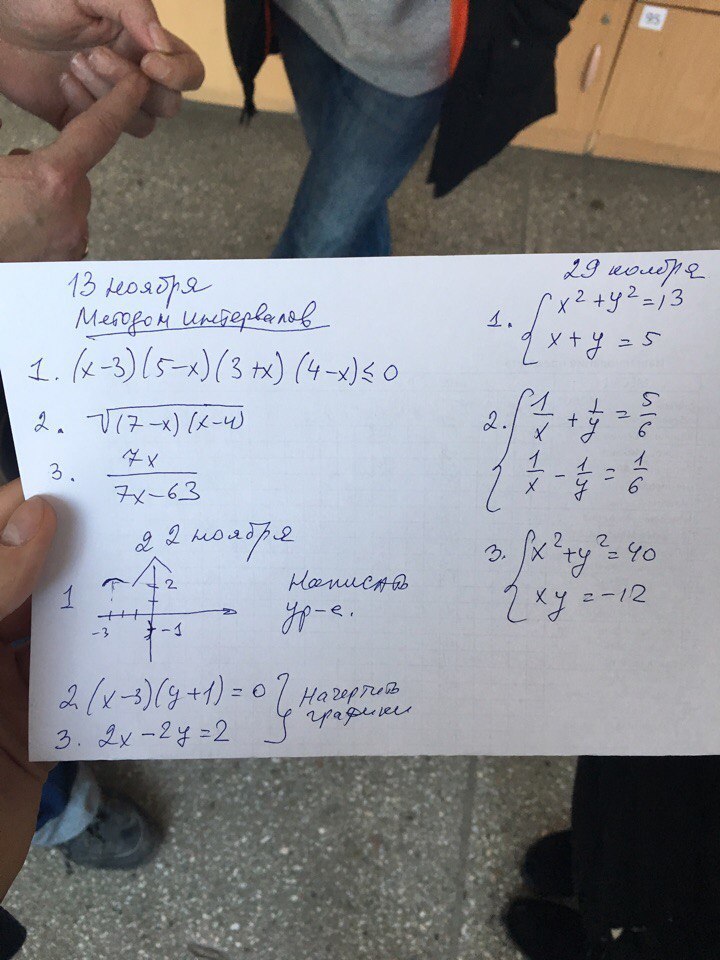 95
13 ноября
Методом интервалов
1. (x-3)(5-x)(3+x)(4-x)≤0
2. √(7-x)(x-4)
3. 7x
7x-63
22 ноября
1
2
-3
-1
Написать
ур-е.
2 (x-3)(y+1)=0
3. 2x-2y=2
Начертить
графики
29 ноября
1. { x²+y²=13
x+y=5
2. { 1/x + 1/y = 5/6
1/x - 1/y = 1/6
3. { x²+y²=40
xy=-12